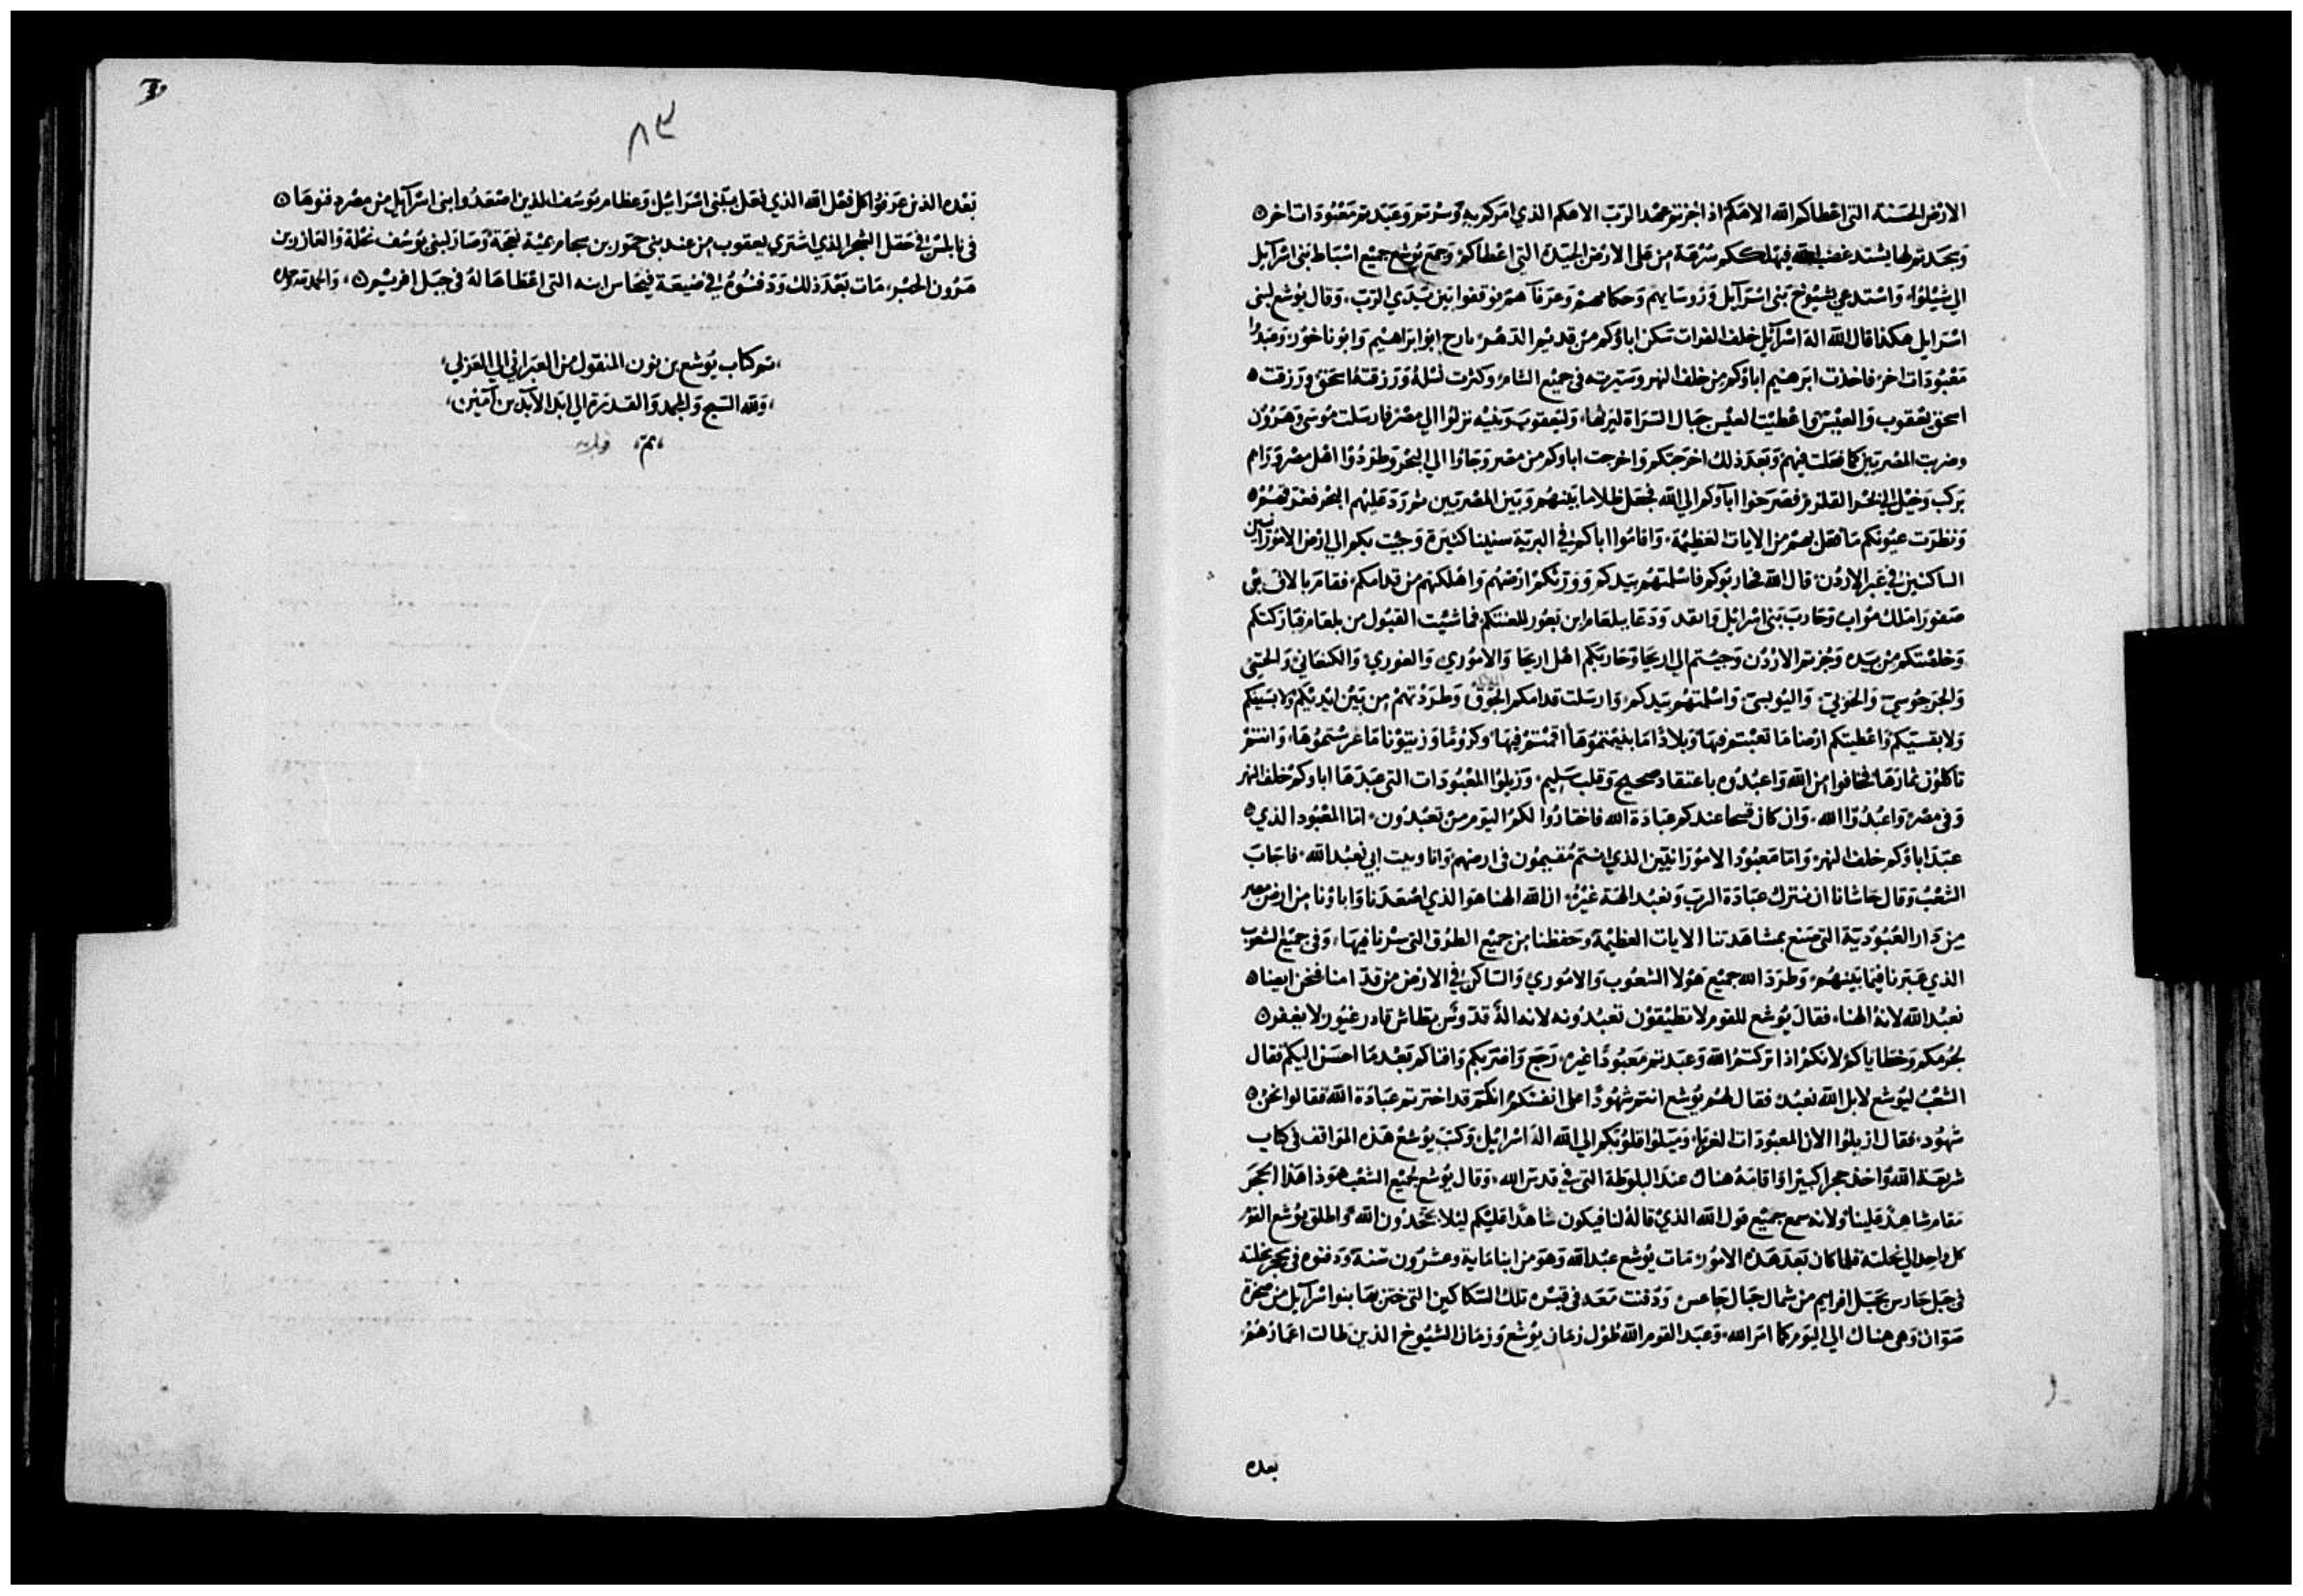 الارض الحسنة التي اعطاكم الله الاهكم اذا جزتم عهد الرب الاهكم الذي امركم به وسرتم وعبدتم معبودات اخر
وسجدتم لها يشتد غضب الله فيهلككم سرعة من على الارض الجيدة التي اعطاكم وجمع يوشع جميع اسباط بني اسرآيل
الي شيلوا واستدعي بشيوخ بني اسرآيل وروسايهم وحكامهم وعرفآهم فوقفوا بين يدي الرب وقال يوشع لبني
اسرايل هكذا قال الله اله اسرآيل خلف الفرات سكن اباوكم من قديم الدهر تارح ابو ابراهيم وابو ناحور وعبدوا
معبودات اخر فاخذت ابرهيم اباكم من خلف النهر وسيرته في جميع الشام وكثرت نسله ورزقته اسحق ورزقت
اسحق يعقوب والعيس واعطيت لعيس جبال السراة ليرثها وليعقوب وبنيه نزلوا الي مصر فارسلت موسى وهرون
وضربت المصريين كما فعلت فيهم وبعد ذلك اخرجتكم واخرجت اباوكم من مصر وجاوا الي البحر وطردوا اهل مصر وراهم
بركب وخيل الي بحر القلزم فصرخوا ابآوكم الي الله فجعل ظلاما بينهم وبين المصريين ثم رد عليهم البحر فغرقهم
ونظرت عيونكم ما فعل بهم من الايات العظيمة واقاموا اباكم في البرية سنينا كثيرة وجيت بكم الي ارض الامورانيين
الساكنين في عبر الاردن قال الله فحاربوكم فاسلمتهم بيدكم وورثتكم ارضهم واهلكتهم من قدامكم فقام بالاق بن
صفورا ملك مواب وحارب بني اسرايل وانفد ودعا ببلعام ابن بعور للعنتكم فما شيت القبول من بلعام فباركتكم
وخلصتكم من يده وجزتم الاردن وجيتم الي اريحا وحاربكم اهل اريحا والاموري والفوري والكنعاني والحتي
والجرجوسي والحوي واليوبسي واسلمتهم بيدكم وارسلت قدامكم وطردتهم من بين ايديكم لا بسيفكم
ولا بقسيكم واعطيتكم ارضا ما تعبتم فيها وبلادا ما بنيتموها اقمتم فيها وكروما وزيتونا ما غرستموها وانتم
تاكلون ثمارها فخافوا من الله واعبدوه باعتقاد صحيح وقلب سليم وزيلوا المعبودات التي عبدها اباوكم خلف النهر
وفي مصر واعبدوا الله وان كان قبيحا عندكم عبادة الله فاختاروا لكم اليوم من تعبدون اما المعبود الذي
عبد اباوكم خلف النهر واما معبود الامورانيين الذي انتم مقيمون في ارضهم وانا وبيت ابي نعبد الله فاجاب
الشعب وقال حاشانا ان نترك عبادة الرب ونعبد الهة غيره ان الله الهنا هو الذي اصعدنا واباونا من ارض مصر
من دار العبودية التي صنع بمشاهدتنا الايات العظيمة وحفظنا من جميع الطرق التي سرنا فيها وفي جميع الشعوب
الذي عبرنا فيما بينهم وطرد الله جميع هولا الشعوب والاموري والساكن في الارض من قدامنا فنحن ايضا
نعبد الله لانه الهنا فقال يوشع للقوم لا تطيقون تعبدونه لانه اله قدوس بطاش قادر غيور لا يغفر
لجرمكم وخطاياكم لانكم اذا تركتم الله وعبدتم معبودا غيره رجع واضر بكم وافناكم بعد ما احسن اليكم فقال
الشعب ليوشع لا بل الله نعبد فقال لهم يوشع انتم شهودا على انفسكم انكم قد اخترتم عبادة الله فقالوا نحن
شهود فقال ازيلوا الان المعبودات الغربا وميلوا قلوبكم الي الله اله اسرايل وكتب يوشع هذه المواقف في كتاب
شريعة الله واخذ حجرا كبيرا واقامه هناك عند البلوطة التي في قدس الله وقال يوشع لجميع الشعب هوذا هذا الحجر
مقام شاهد علينا ولانه سمع جميع قول الله الذي قاله لنا فيكون شاهدا عليكم ليلا تجحدون الله واطلق يوشع القوم
كل واحد الي نحلته فلما كان بعد هذه الامور مات يوشع عبد الله وهو من ابنا ماية وعشرون سنة ودفنوه في نحلته
في جبل حارس بجبل افرايم من شمال جبال جاعس ودفنت معه في قبره تلك السكاكين التي ختن بها بنوا اسرآيل من صخرة
صوان وهي هناك الي اليوم كما امر الله وعبد القوم الله طول زمان يوشع وزمان الشيوخ الذين طالت اعمارهم
بعده
٨٣
بعده الذين عرفوا كل فعل الله الذي فعل ببني اسرائيل وعظام يوسف الذين اصعدوا بني اسرآيل من مصر دفنوها
في نابلس في حقل الشجر الذي اشتري يعقوب من عند بني حمور بن سحام بمية نعجة وصار لبني يوسف نحلة والعازر بن
هرون الحبر مات بعد ذلك ودفنوه في ضيعة فينحاس ابنه التي اعطاها له في جبل افريم والحمد لله
تم كتاب يوشع بن نون المنقول من العبراني الي العربي
ولله التسبيح والمجد والقدرة الي ابد الابدين آمين
تم